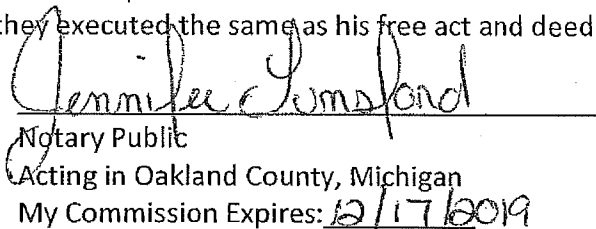 they executed the same as his free act and deed
Jennifer Lumsford
Notary Public
Acting in Oakland County, Michigan
My Commission Expires: 12/17/2019